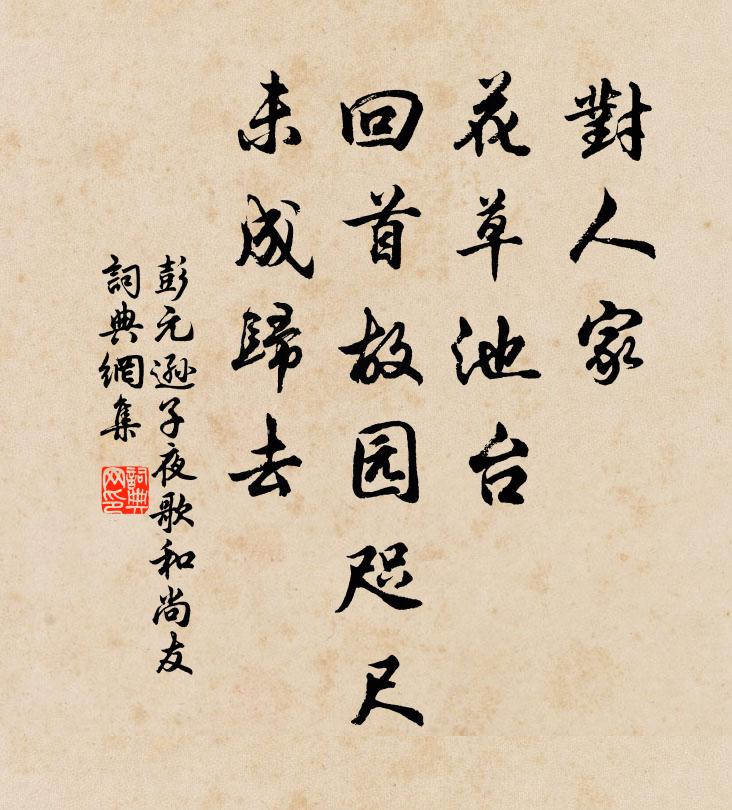 對人家
花草池台
回首故园咫尺
未成歸去
彭元遜子夜歌和尚友
詞典網集
詞典网印